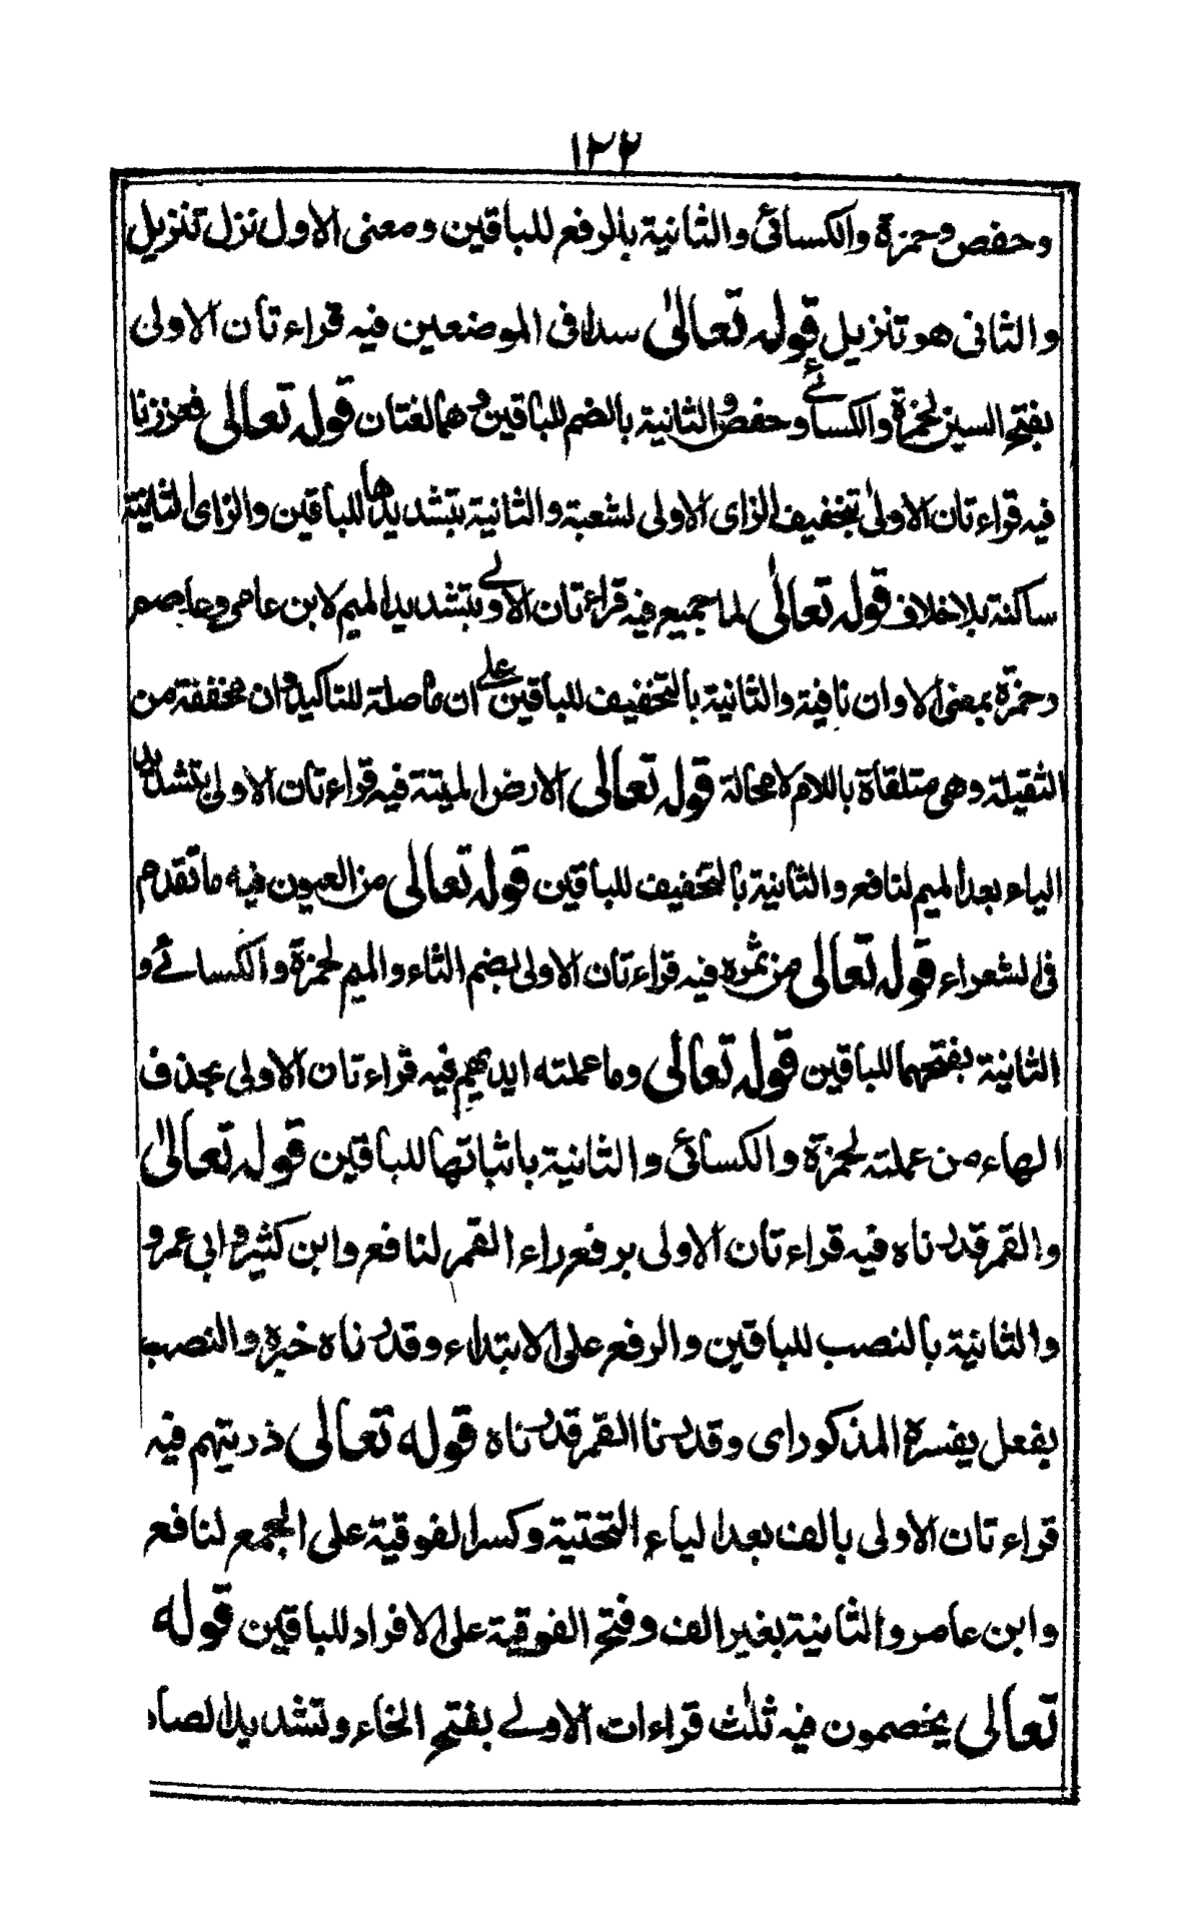 ١٢٢
وحفص وحمزة والكسائی والثانية بالرفع للباقين ومعنی الاول نزل تنزيل
والثانی هو تنزيل قوله تعالیٰ سدا فی الموضعين فيه قراءتان الاولی
بفتح السين لحمزة والكسائے وحفص والثانية بالضم للباقين وهما لغتان قوله تعالی فعززنا
فيه قراءتان الاولیٰ بتخفيف الزای الاولی لشعبة والثانية بتشديدها للباقين والزای الثانية
ساكنة بلا خلاف قوله تعالیٰ لما جميع فيه قراءتان الاولے بتشديد الميم لابن عامر وعاصم
وحمزة بمعنی الا وان نافية والثانية بالتخفيف للباقين علے ان ما صلة للتاكيد وان مخففة من
الثقيلة وهی متلقاة باللام لا محالة قوله تعالی الارض الميتة فيه قراءتان الاولی بتشديد
الياء بعد الميم لنافع والثانية بالتخفيف للباقين قوله تعالی من العيون فيه ما تقدم
فی الشعراء قوله تعالی من ثمره فيه قراءتان الاولی بضم الثاء والميم لحمزة والكسائے و
الثانية بفتحهما للباقين قوله تعالی وما عملته ايديهم فيه قراءتان الاولی بحذف
الهاء من عملته لحمزة والكسائی والثانية باثباتها للباقين قوله تعالیٰ
والقمر قدرناه فيه قراءتان الاولی برفع راء القمر لنافع وابن كثير وابی عمرو
والثانية بالنصب للباقين والرفع علی الابتداء وقدرناه خبره والنصب
بفعل يفسره المذكور ای وقدرنا القمر قدرناه قوله تعالی ذريتهم فيه
قراءتان الاولی بالف بعد الياء التحتية وكسر الفوقية علی الجمع لنافع
وابن عامر والثانية بغير الف وفتح الفوقية علی الافراد للباقين قوله
تعالی يخصمون فيه ثلٰث قراءات الاولے بفتح الخاء وتشديد الصاد